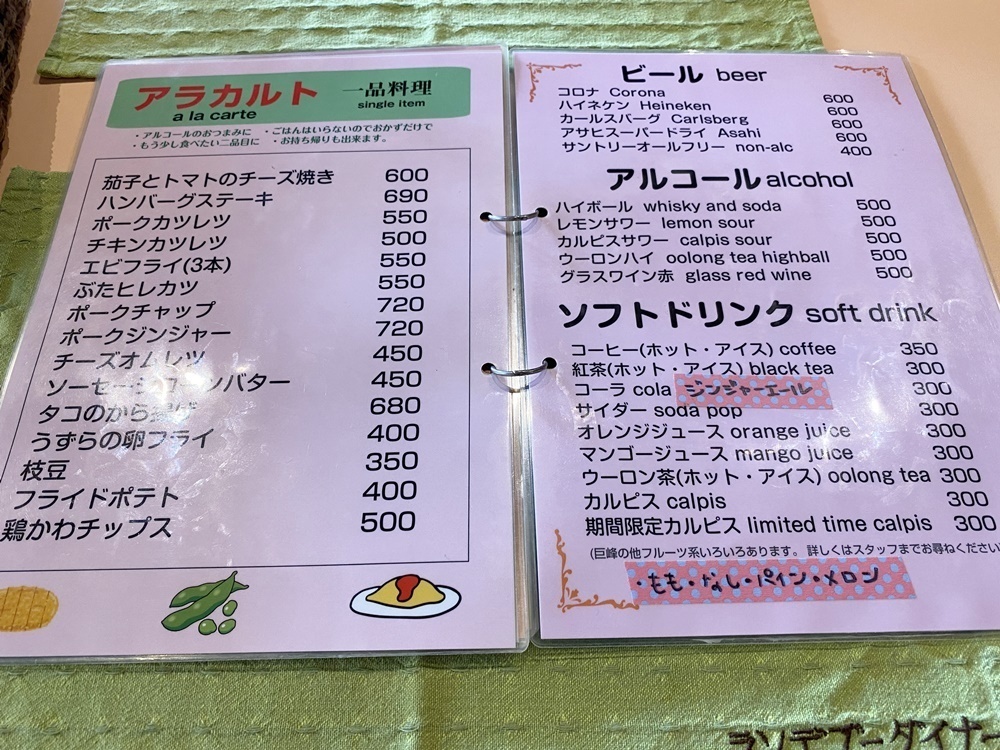 アラカルト 一品料理
a la carte single item
・アルコールのおつまみに ・ごはんはいらないのでおかずだけで
・もう少し食べたい二品目に ・お持ち帰りも出来ます。
茄子とトマトのチーズ焼き 600
ハンバーグステーキ 690
ポークカツレツ 550
チキンカツレツ 500
エビフライ(3本) 550
ぶたヒレカツ 550
ポークチャップ 720
ポークジンジャー 720
チーズオムレツ 450
ソーセージコーンバター 450
タコのから揚げ 680
うずらの卵フライ 400
枝豆 350
フライドポテト 400
鶏かわチップス 500
ビール beer
コロナ Corona 600
ハイネケン Heineken 600
カールスバーグ Carlsberg 600
アサヒスーパードライ Asahi 600
サントリーオールフリー non-alc 400
アルコール alcohol
ハイボール whisky and soda 500
レモンサワー lemon sour 500
カルピスサワー calpis sour 500
ウーロンハイ oolong tea highball 500
グラスワイン赤 glass red wine 500
ソフトドリンク soft drink
コーヒー(ホット・アイス) coffee 350
紅茶(ホット・アイス) black tea 300
コーラ cola ジンジャーエール 300
サイダー soda pop 300
オレンジジュース orange juice 300
マンゴージュース mango juice 300
ウーロン茶(ホット・アイス) oolong tea 300
カルピス calpis 300
期間限定カルピス limited time calpis 300
(巨峰の他フルーツ系いろいろあります。 詳しくはスタッフまでお尋ねください
・もも・なし・パイン・メロン
ランデブーダイナー